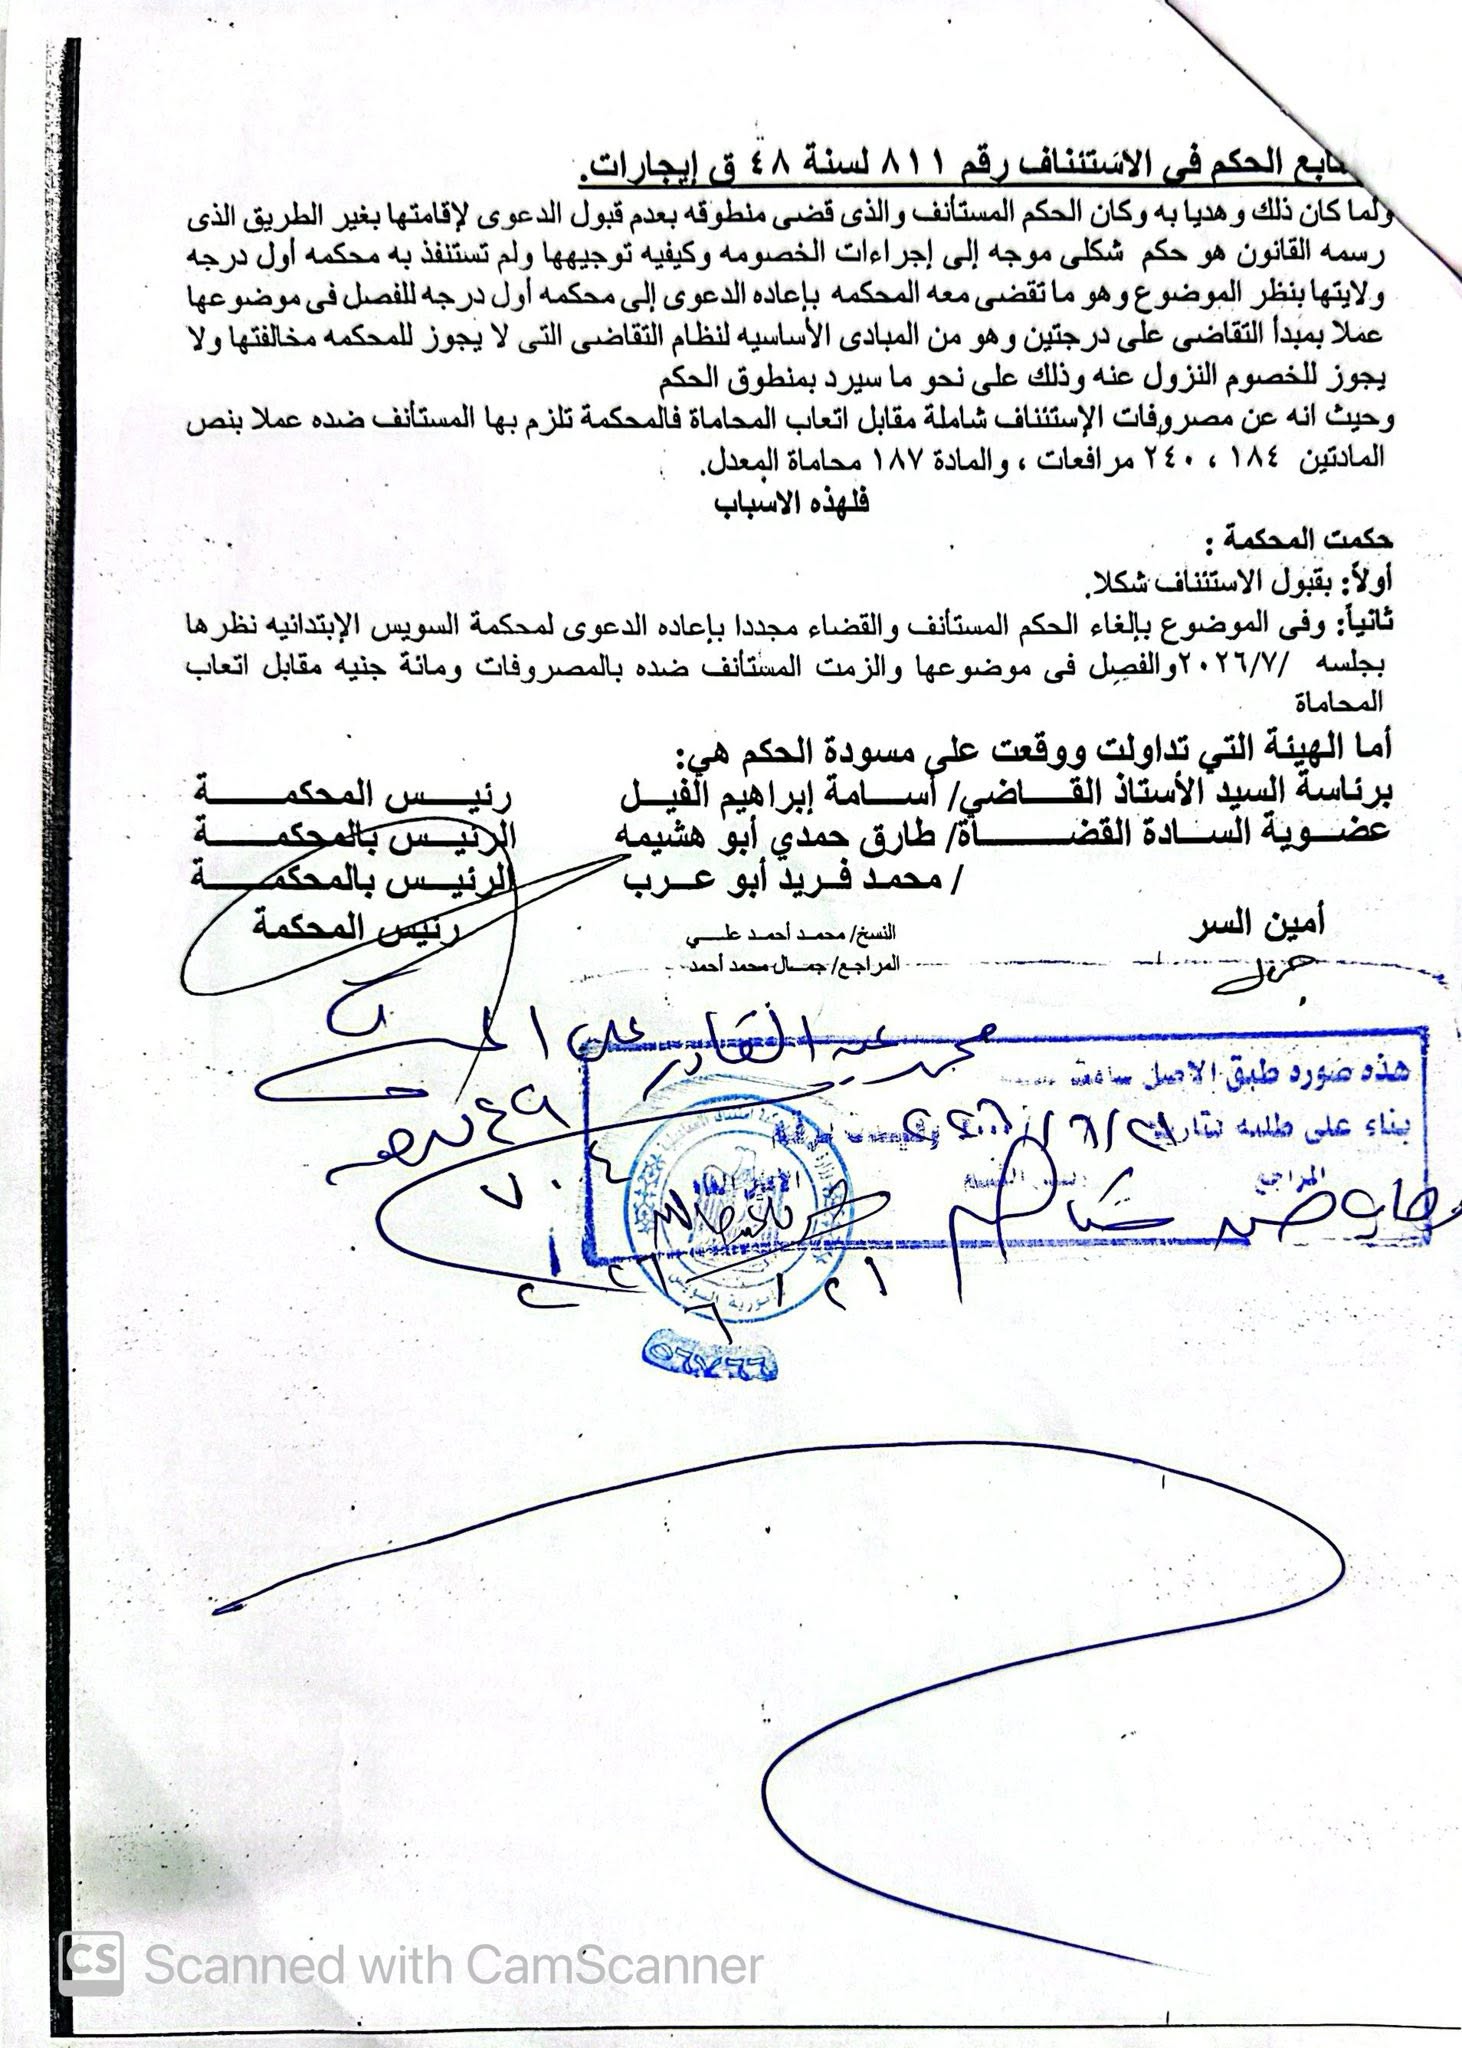 تابع الحكم في الاستئناف رقم ٨١١ لسنة ٤٨ ق إيجارات.
ولما كان ذلك وهديا به وكان الحكم المستأنف والذى قضى منطوقه بعدم قبول الدعوى لإقامتها بغير الطريق الذى
رسمه القانون هو حكم شكلى موجه إلى إجراءات الخصومه وكيفيه توجيهها ولم تستنفذ به محكمه أول درجه
ولايتها بنظر الموضوع وهو ما تقضى معه المحكمه بإعاده الدعوى إلى محكمه أول درجه للفصل فى موضوعها
عملا بمبدأ التقاضى على درجتين وهو من المبادى الأساسيه لنظام التقاضى التى لا يجوز للمحكمه مخالفتها ولا
يجوز للخصوم النزول عنه وذلك على نحو ما سيرد بمنطوق الحكم
وحيث انه عن مصروفات الإستئناف شاملة مقابل اتعاب المحاماة فالمحكمة تلزم بها المستأنف ضده عملا بنص
المادتين ١٨٤ ، ٢٤٠ مرافعات ، والمادة ١٨٧ محاماة المعدل.
فلهذه الاسباب
حكمت المحكمة :
أولاً: بقبول الاستئناف شكلا.
ثانياً: وفى الموضوع بإلغاء الحكم المستأنف والقضاء مجددا بإعاده الدعوى لمحكمة السويس الإبتدائيه نظرها
بجلسه /٢٠٢٦/٧ والفصل فى موضوعها والزمت المستأنف ضده بالمصروفات ومائة جنيه مقابل اتعاب
المحاماة
أما الهيئة التي تداولت ووقعت على مسودة الحكم هي:
برئاسة السيد الأستاذ القـــاضي/ أســامة إبراهيم الفيــل رئيـــس المحكمـــــة
عضــوية الســادة القضــــــاة/ طارق حمدي أبو هشيمه الرئيــس بالمحكمـــــة
/ محمـد فـريد أبو عــرب الرئيــس بالمحكمـــــة
أمين السر النسخ/ محمـد أحمـد علـــي رئيس المحكمة
المراجع/ جمــال محمد أحمد
محمد عبد القادر على
هذه صوره طبق الاصل
بناء على طلبه بتاريخ ٢٠٢٦/٦/٢١
المراجع
٧٠٤
٢٠٢٦/٦/٢١
CS Scanned with CamScanner